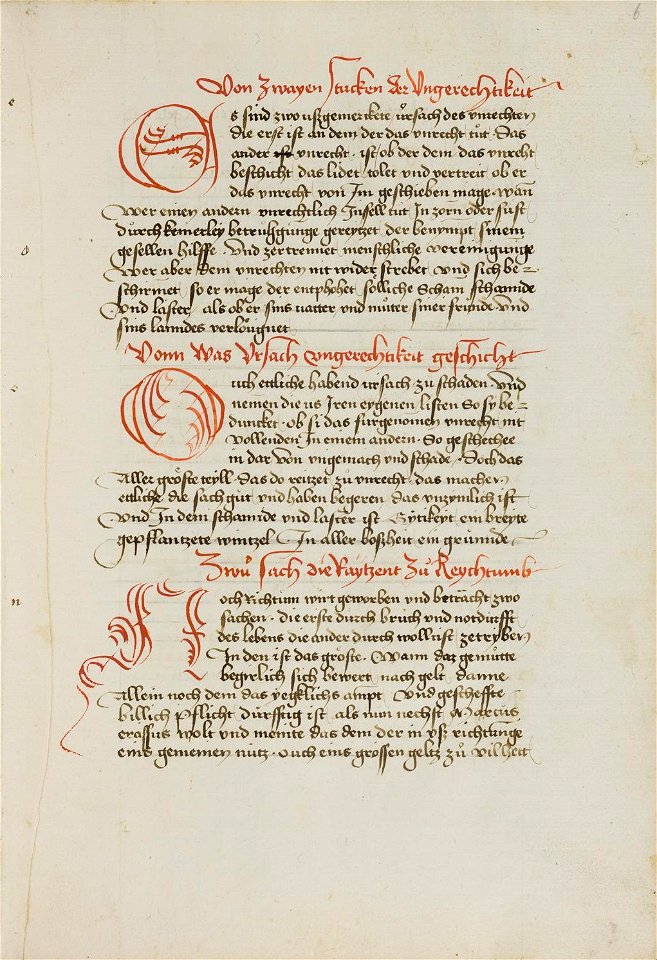 6
Von Zwayen Stucken der Ungerechtikeit
Es sind zwo ußgemerckete ursach des unrechten
die erst ist an dem der das unrecht tůt. Das
ander ist unrecht. ist ob der dem das unrecht
beschicht das lidet tolet und vertreit ob er
das unrecht von Im geschieben mage. wan
Wer einen andern unrechtlich Infell tut In zorn oder sust
durch keinerley gereytzet der benympt sinem
gesellen hilffe. Und zertrennet menschliche vereinigunge
Wer aber dem unrechten nit wider strebet und sich be=
schirmet so er mage der entphohet solliche Scham schannde
Und laster als ob er sins vatter und můter siner frunde und
sins lanndes verlöugnet
Vonn Was Ursach ungerechtikeit geschicht
Ouch ettliche habend ursach zu schaden. Und
nemen die us Iren eygenen listen So sy be=
duncket. ob si das furgenomen unrecht nit
vollenden In einem andern. So geschechee
in dar von ungemach und schade. Doch das
Aller gröste teyll. das do reitzet zů unrecht. das machen
ettliche die sach gůt und haben begeren das unzymlich ist
Und In dem schannde und laster ist Gytikeyt ein breyte
gepflantzete wurtzel In aller boßheit ein grunnde
Zwů sach die Raytzent Zů Reychtumb
Noch Richtum wirt geworben und betracht zwo
sachen. die erste durch bruch und notdurfft
des lebens die ander durch wollust zetryben
In den ist das gröste. Wann daz gemutte
begirlich sich bewert nach gelt danne
Allein noch dem das yegklichs ampt und gescheffte
billich pflicht durfftig ist als nun nechst Marcus
crassus wolt und meinte das dem der in yß richtunge
eins gemeinen nutz. ouch eins grossen geltz zů vilheit